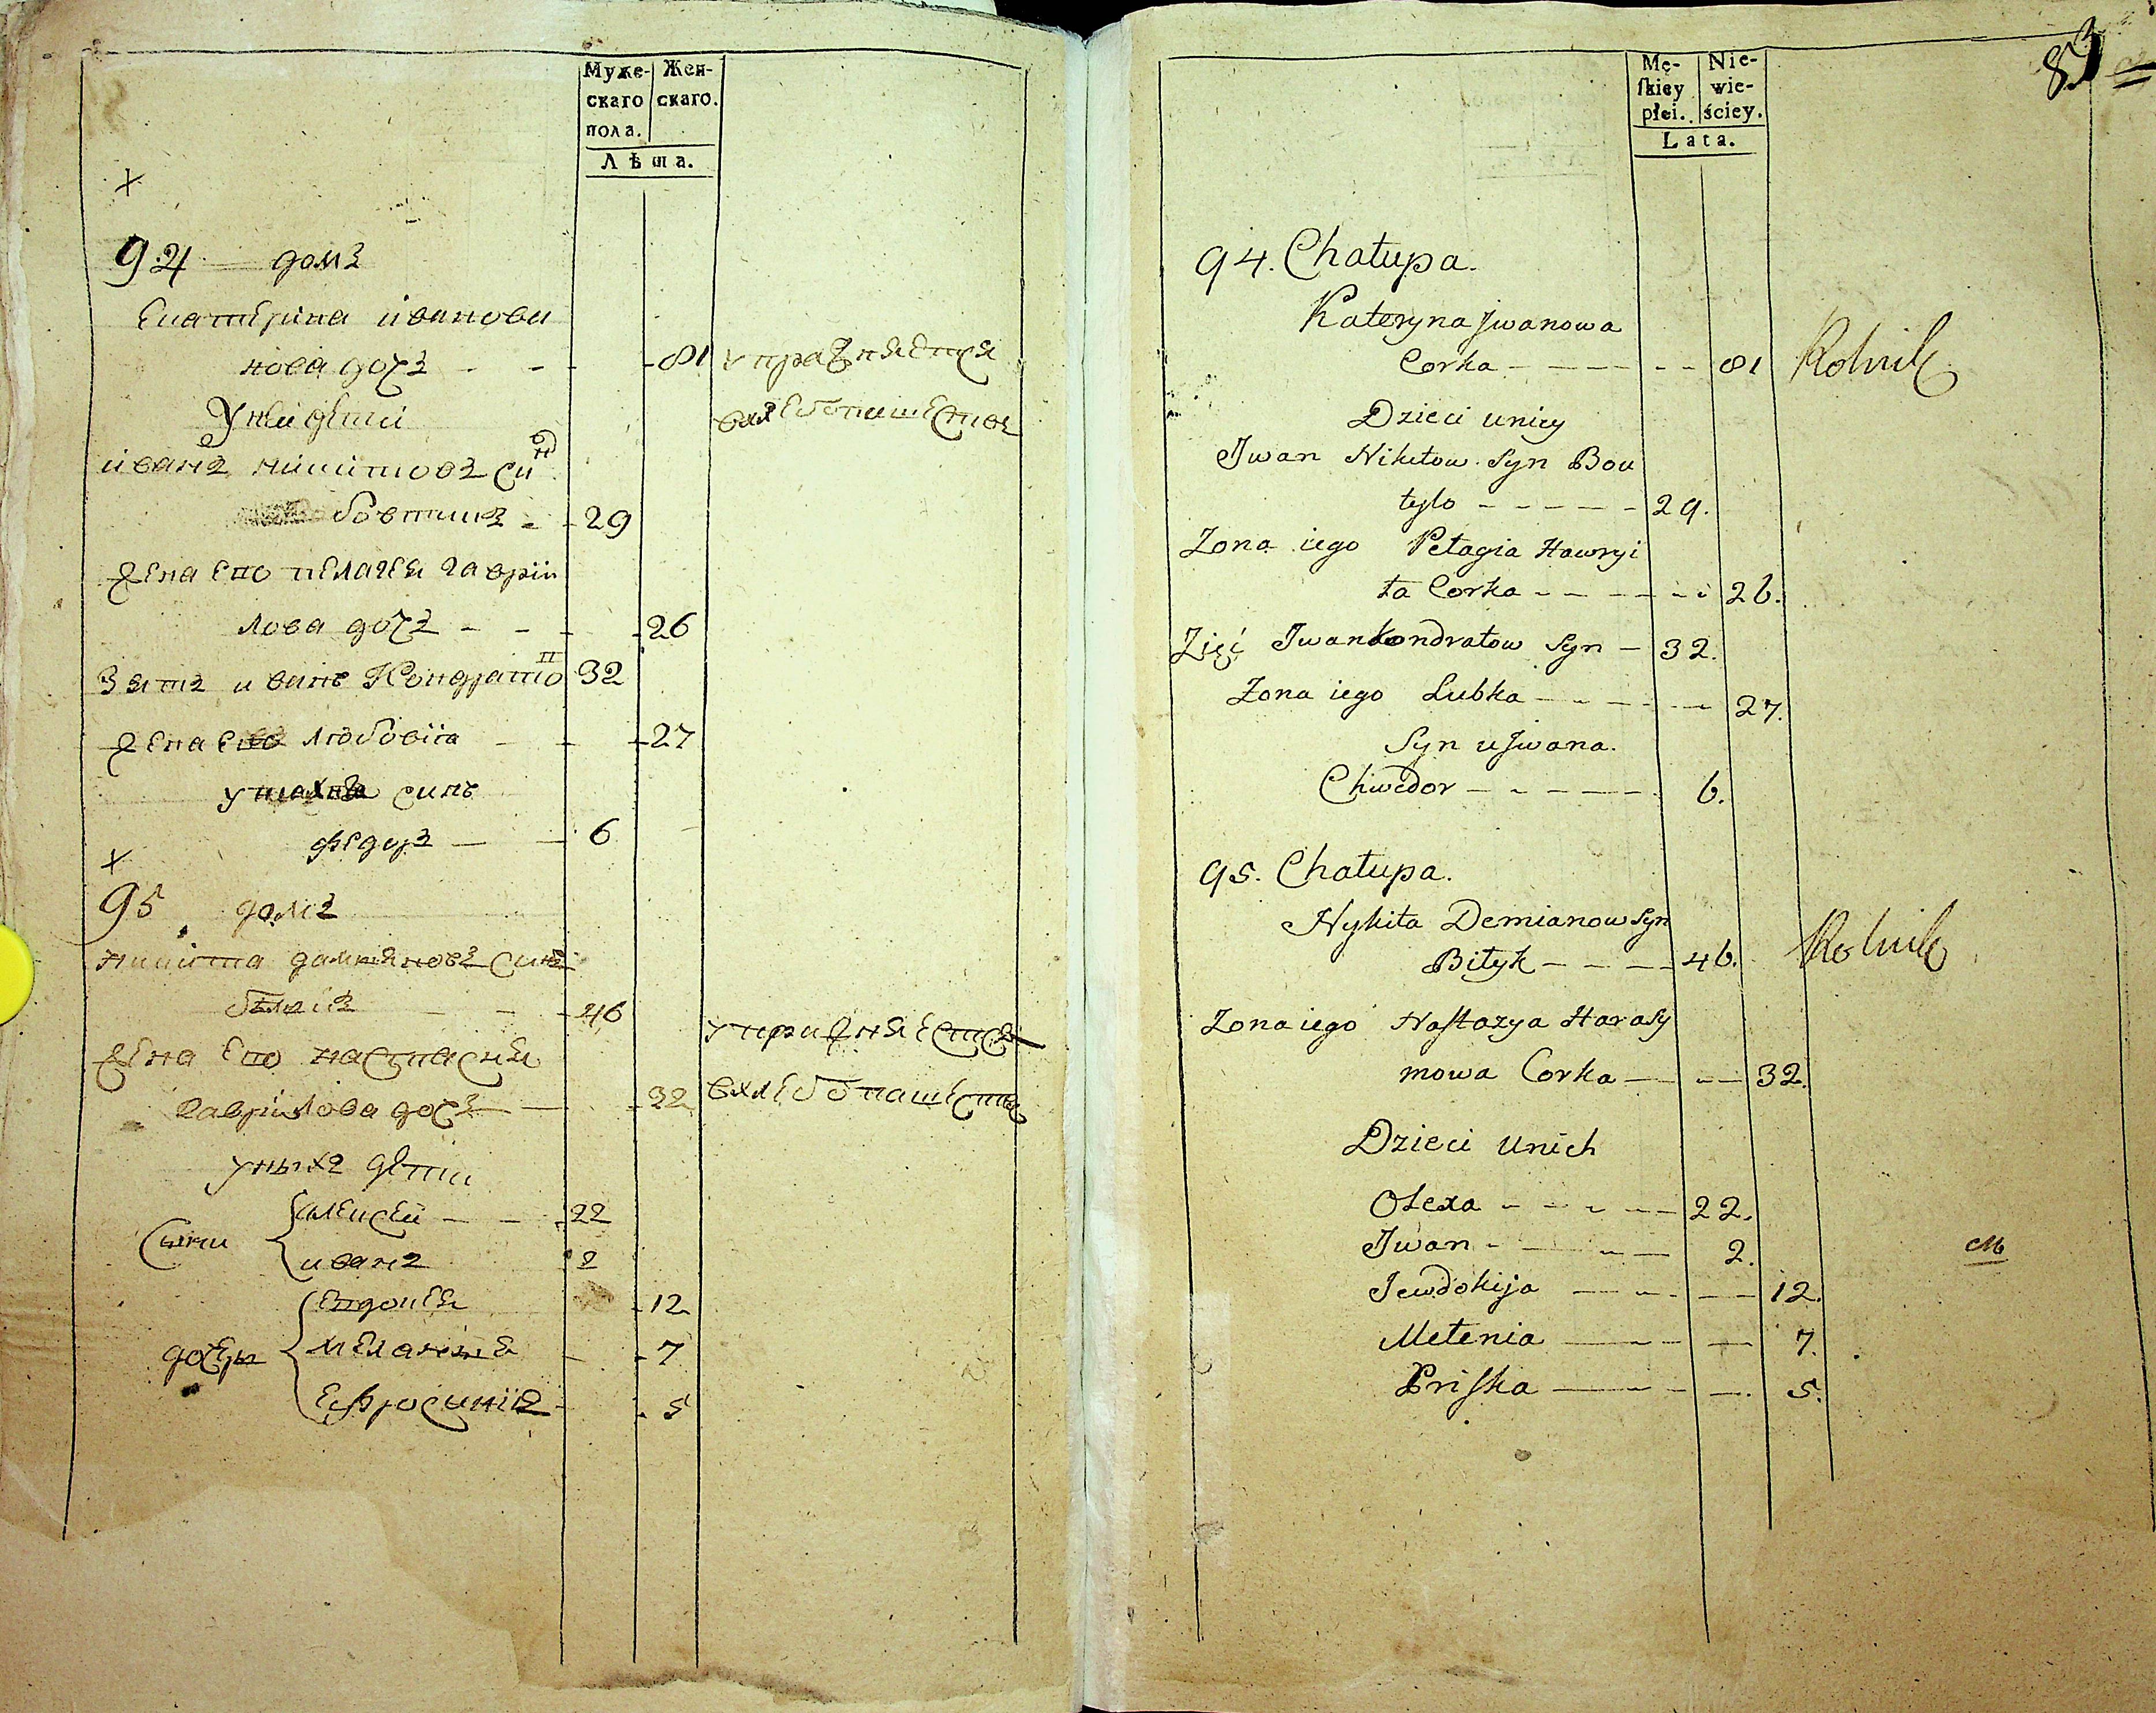 Муже- Жен-
скаго скаго.
пола.
Лѣта.
94 домъ
Екатерина иванови
нова дочъ - - - 81 упражняется
у неи дети вхлебопашестве
иванъ никитовъ син
бовтикъ - - 29
жена его пелагея гаврии
лова дочъ - - - 26
Зять иванъ Кондрато 32
жена его любовка - - 27
у син
федоръ - - 6
95 домъ
никита дамяновъ синъ
білікъ - - 46
упражняется
жена его настасия
гаврилова дочъ - 32 вхлебопашестве
у ныхъ дети
Сыни алексей - - 22
иванъ 2
дочери евдокея 12
меланья - 7
Ефросиния - 5
83
Mę- Nie-
ſkiey wie-
płei. ściey.
Lata.
94. Chałupa.
Kateryna Jwanowa
Corka - - - - - 81 Rolnik
Dzieci uniey
Jwan Nikitow Syn Bou
tylo - - - - - 29.
Zona iego Pelagia Hawryi
ła Corka - - - - - 26.
Zięć Jwan Kondratow Syn - 32.
Zona iego Lubka - - - - 27.
Syn u Jwana.
Chwedor - - - - - 6.
95. Chałupa.
Nykita Demianow Syn
Biłyk - - - - 46. Rolnik
Zona iego Naſtazya Harasy
mowa Corka - - - 32.
Dzieci unich
Olexa - - - - - 22.
Jwan - - - - 2.
Jewdokija - - - - 12.
Melenia - - - - 7.
Priſka - - - - 5.